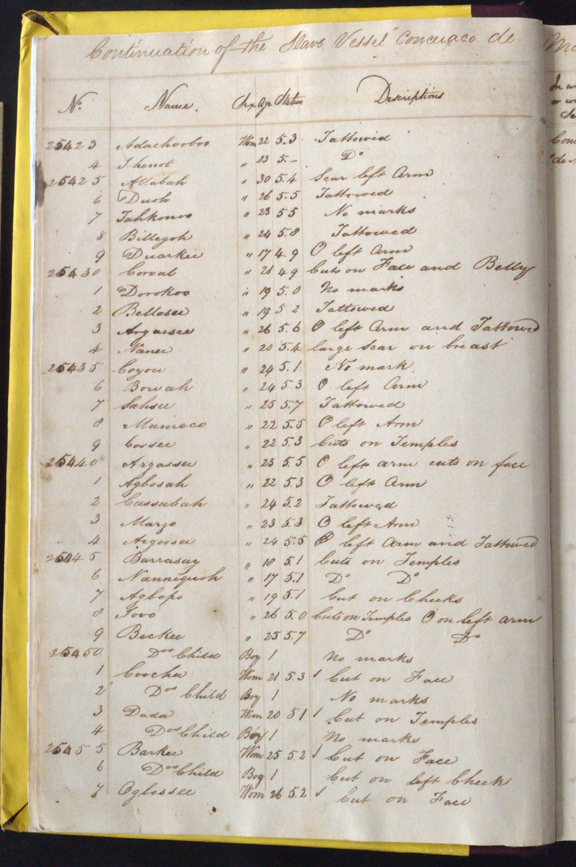 Continuation of the Slave Vessel "Conceiaco de
No. Name. Sex Age Stature Descriptions
25423 Adachooboo Wom 22 5.3 Tattowed
4 Thenot " 23 5.– Do
25425 Allabah " 30 5.4 Scar left Arm
6 Duoh " 26 5.5 Tattowed
7 Tahkonoo " 23 5.5 No marks
8 Billegoh " 24 5.8 Tattowed
9 Duarkee " 17 4.9 O left Arm
25430 " 21 4.9 Cuts on Face and Belly
1 Dorokoo " 19 5.0 No marks
2 Bellosee " 19 5.2 Tattowed
3 Argassee " 26 5.6 O left Arm and Tattowed
4 Nanee " 20 5.4 large Scar on breast
25435 Coyou " 24 5.1 No mark
6 Bowah " 24 5.3 O left Arm
7 Sahsee " 25 5.7 Tattowed
8 " 22 5.5 O left Arm
9 Cossee " 22 5.3 Cuts on Temples
25440 Argassee " 23 5.5 O left arm cuts on face
1 Agbosah " 22 5.3 O left Arm
2 Cassubah " 24 5.2 Tattowed
3 Margo " 23 5.3 O left Arm
4 Argossee " 24 5.5 O left Arm and Tattowed
25445 Barrasay " 18 5.1 Cuts on Temples
6 Nannequoh " 17 5.1 Do Do
7 Agbopo " 19 5.1 Cut on Cheeks
8 Jovo " 26 5.0 Cuts on Temples O on left arm
9 Beckee " 25 5.7 Do Do
25450 Dos Child Boy 1 No marks
1 Coocha Wom 21 5.3 1 Cut on Face
2 Dos Child Boy 1 No marks
3 Dada Wom 20 5.1 1 Cut on Temples
4 Dos Child Boy 1 No marks
25455 Barkee Wom 25 5.2 1 Cut on Face
6 Dos Child Boy 1 Cut on left Cheek
7 Ogbossee Wom 26 5.2 1 Cut on Face